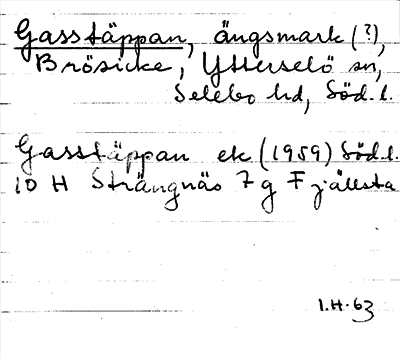 Gasstäppan, ängsmark (?),
Brösicke, Ytterselö sn,
Selebo hd, Söd.l.
Gasstäppan ek (1959) Söd.l.
10 H Strängnäs 7 g Fjällsta
I.H. 63